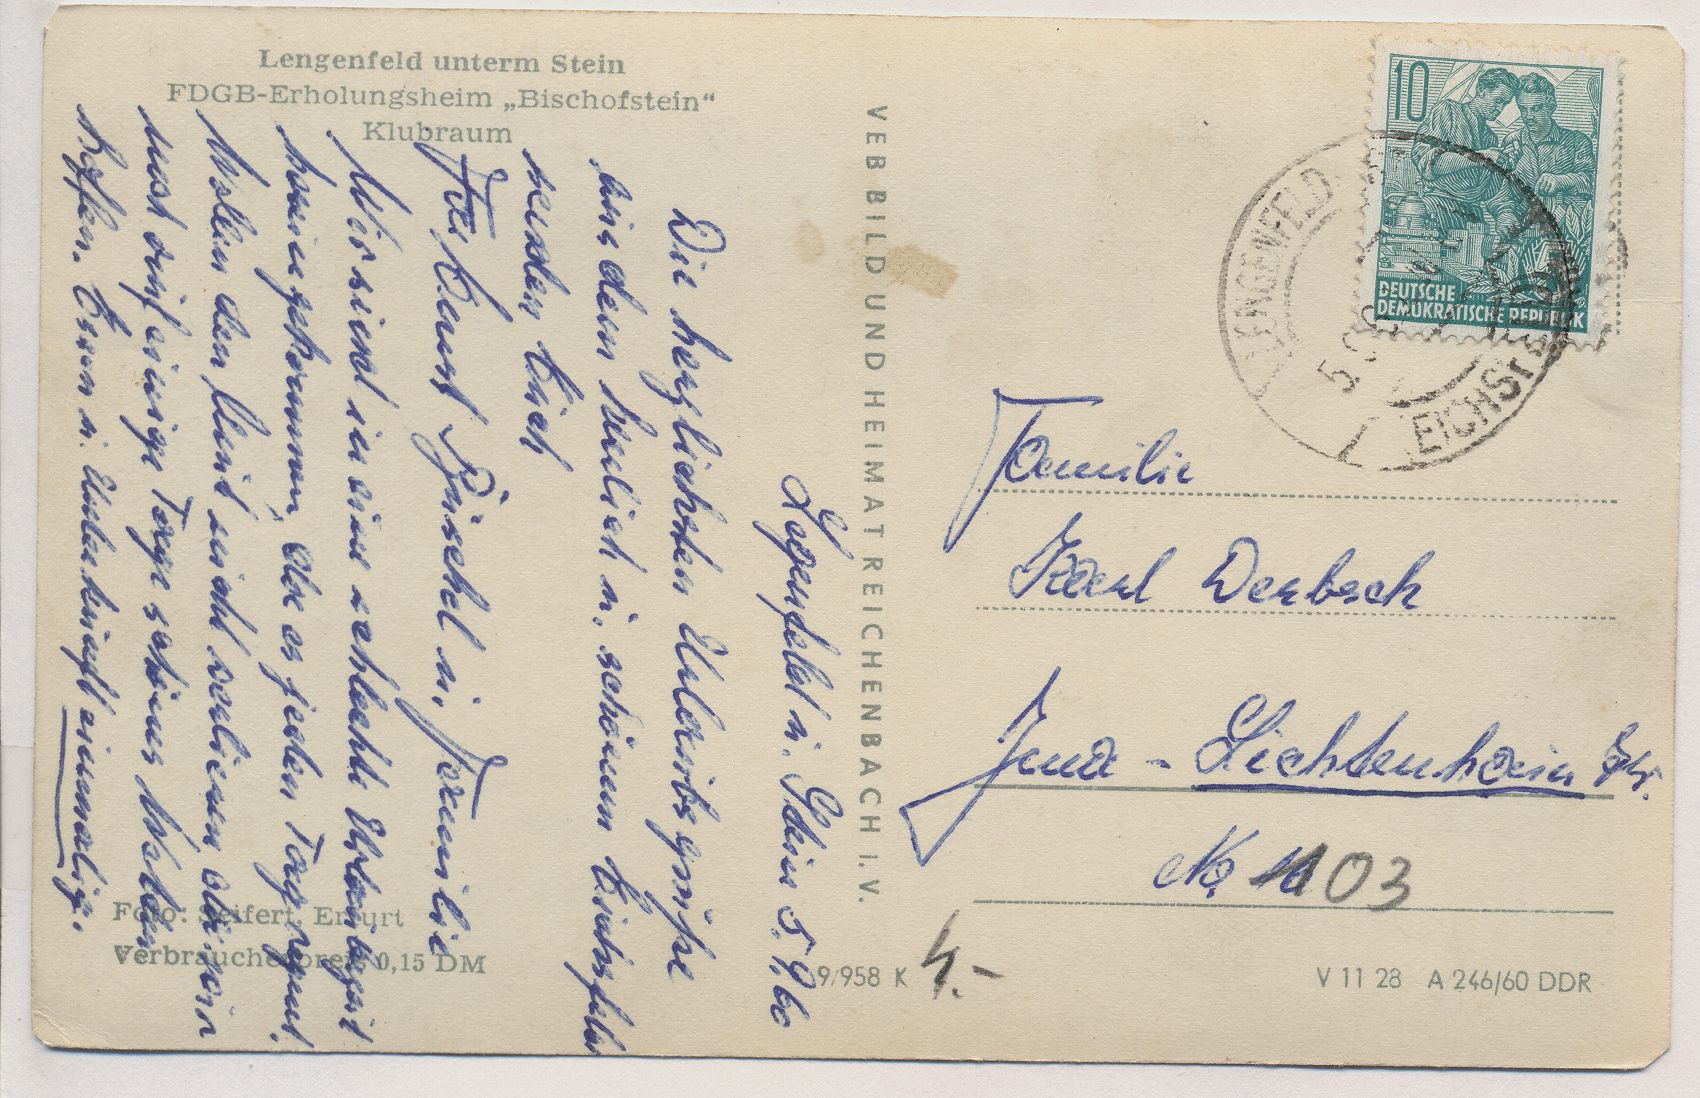 Lengenfeld unterm Stein
FDGB-Erholungsheim „Bischofstein“
Klubraum
Lengenfeld u. Stein 5.9.60
Die herzlichsten Urlaubsgrüße
aus dem herrlich u. schönem Eichsfelde
senden Euch
Kurt Püschel u. Familie
Wir sind in eine schlechte Urlaubszeit
hereingekommen, da es jeden Tag regnet.
Wollen den Mut nicht verlieren und
auf einige Tage schönes Wetter
hoffen. Essen u. Unterkunft einmalig.
Foto: Seifert, Erfurt
Verbraucherpreis 0,15 DM
VEB BILD UND HEIMAT REICHENBACH I. V.
9/958 K
4.-
10
DEUTSCHE
DEMOKRATISCHE REPUBLIK
LENGENFELD
EICHSF
Familie
Karl Derbsch
Jena - Lichtenhain
No. 103
V 11 28 A 246/60 DDR